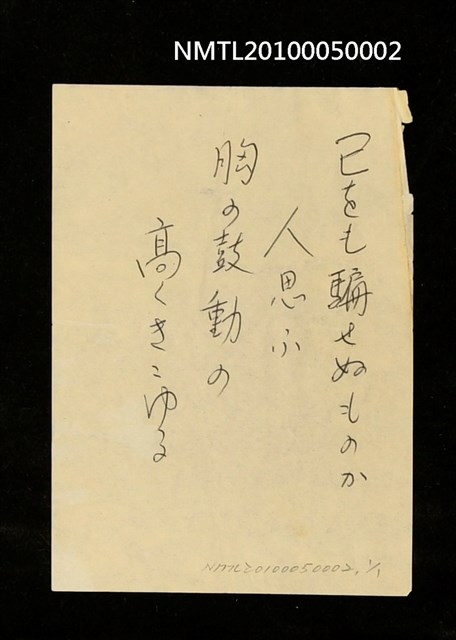 NMTL20100050002
己をも騙せぬものか
人思ふ
胸の鼓動の
高くきこゆる
NMTL20100050002, 1/1